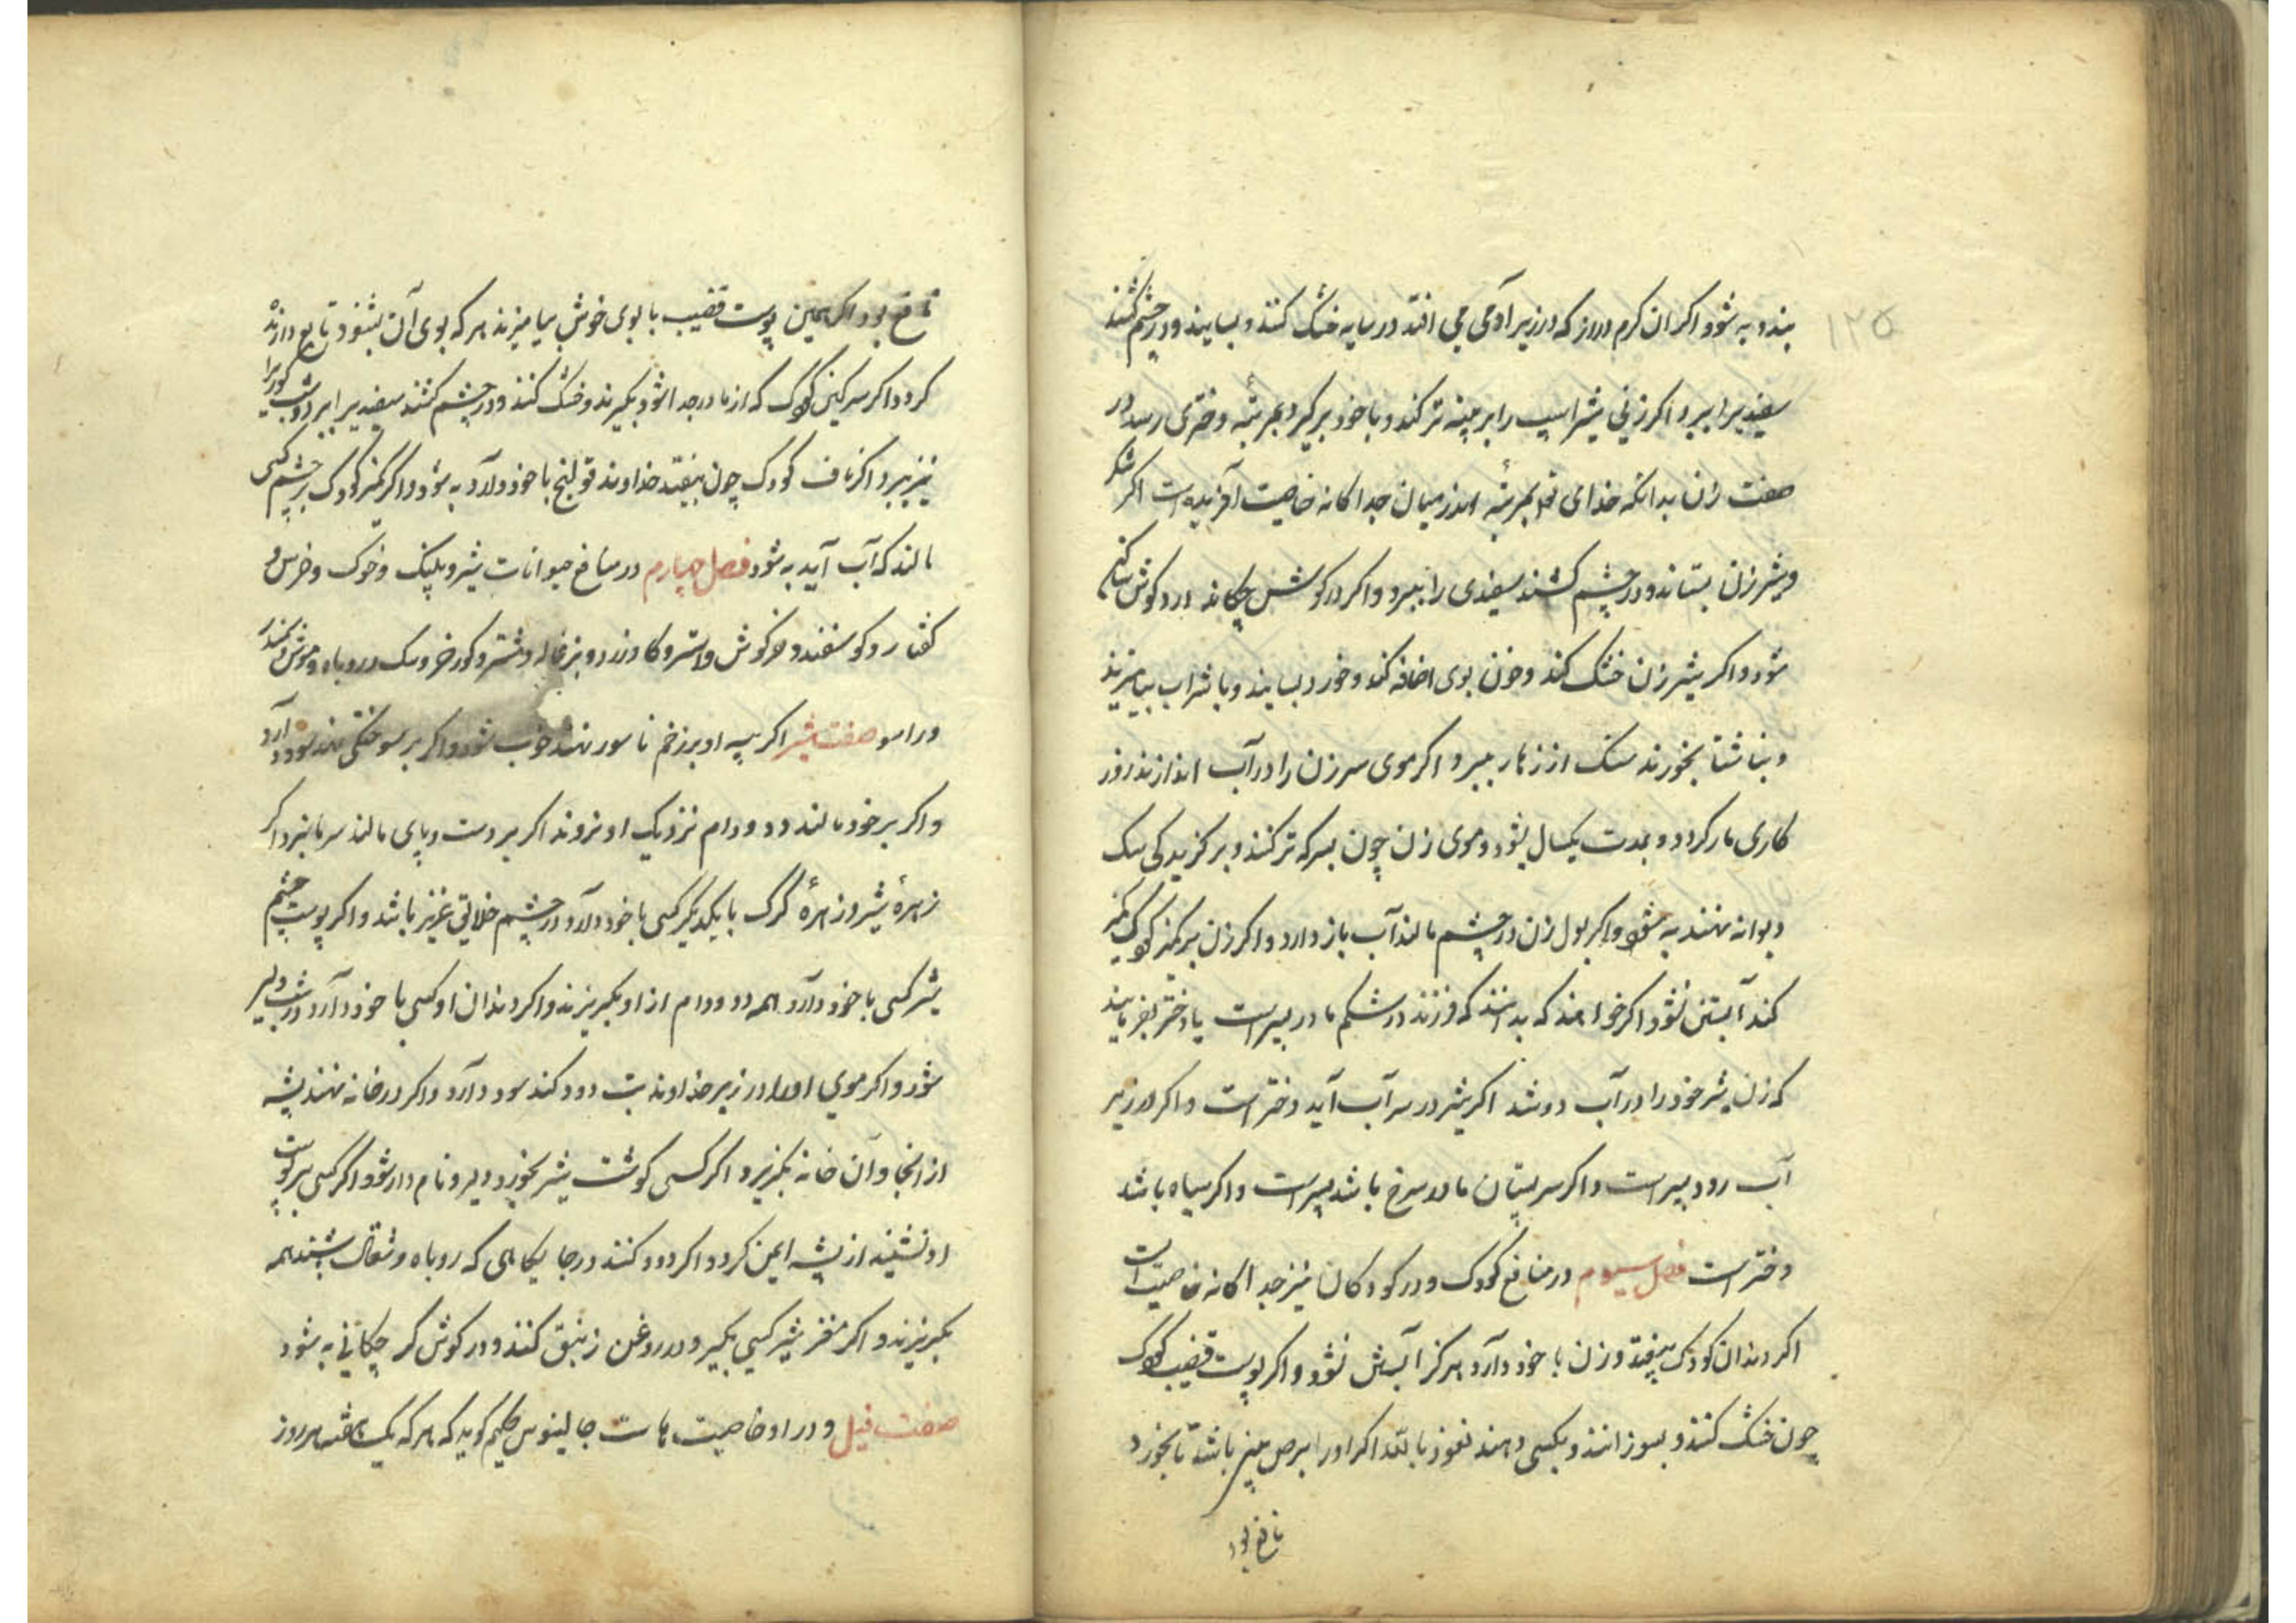 ۱۲۵
بندد به شود اکر ان کرم دراز که در زیر آدمی می افتد در سایه خشک کنند و بسایند و در چشم کشند
سفیدی را ببرد و اکر زنی شیر اسپ را بر پنبه تر کند و با خود بر کیرد بمرتبه دختری رسد در
صفت زن بدانکه خدای تع بمرتبه اندر میان جدا کانه خاصیت آفریده است اکر
و شیر زن بستاند و در چشم کشند سفیدی را ببرد و اکر در کوشش چکاند درد کوش ساکن
شود و اکر شیر زن خشک کند و خون بوی اضافه کند و خورد بسایند و با شراب بیامیزند
و بناشتا بخورند سنک از زهار ببرد و اکر موی سر زن را در آب اندازند روز
کاری مار کردد و بمدت یکسال بشود و موی زن چون بسرکه تر کنند و بر کزیدکی سک
دیوانه نهند به شود و اکر بول زن در چشم مالند آب باز دارد و اکر زن بر کمیز کرک کمیز
کند آبستن نشود اکر خواهند که بدانند که فرزند در شکم مادر پسر است یا دختر بفرمایند
که زن شیر خود را در آب دوشد اکر شیر در سر آب آید دختر است و اکر در زیر
آب رود پسر است و اکر سر پستان مادر سرخ باشد پسر است و اکر سیاه باشد
دختر است فصل سیوم در منافع کودک و در کودکان نیز جدا کانه خاصیت است
اکر دندان کودک بیفتد و زن با خود دارد هرکز آبستن نشود و اکر پوست قضیب کودک
چون خشک کنند و بسوزانند و بکسی دهند نعوذ بالله اکر او را برص نیز باشد تا بخورد
نافع بود
نافع بود اکر همین پوست قضیب با بوی خوش بیامیزند هر که بوی آن بشنود تابع دارنده
کردد و اکر سرکین کودک که از مادر جدا شود بکیرند و خشک کنند و در چشم کشند سفیدی را ببرد و شب کوری را
نیز ببرد و اکر ناف کودک چون بیفتد خداوند قولنج با خود دارد به شود و اکر کمیز کودک بر چشم کسی
مالند که آب آید به شود فصل چهارم در منافع حیوانات شیر و پلنک و خوک و خرس و
کفتار و کوسفند و خرکوش و استر و کاو نر و بزغاله و شتر و کور خر و سک و روباه و موش و بندر
و راسو صفت شیر اکر پیه او بر زخم ناسور نهند خوب شود و اکر بر سوختکی نهند سود دارد
و اکر بر خود مالند دد و دام نزدیک او نروند اکر بر دست و پای مالند سرما نبرد اکر
زهرهٔ شیر و زهرهٔ کرک با یکدیکر کسی با خود دارد در چشم خلایق عزیز باشد و اکر پوست چشم
شیر کسی با خود دارد همه دد و دام از او بکریزند و اکر دندان او کسی با خود دارد در شب دلیر
شود و اکر موی او را در زیر خداوند تب دود کند سود دارد و اکر در خانه نهند پشه
از انجا و آن خانه بکریزد اکر کسی کوشت شیر بخورد دلیر و نام دار شود و اکر کسی بر پوست
او نشیند از پشه ایمن کردد اکر دود کنند در جایکاهی که روباه و شغال باشند همه
بکریزند و اکر مغز شیر کسی بکیرد و در روغن زنبق کنند و در کوش کر چکانی به شود
صفت فیل و در او خاصیت هاست جالینوس حکیم کوید که هر که یک هفته هر روز